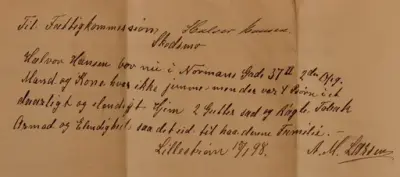 Til Fattigkommissionen Halvor Hansen
Skedsmo
Halvor Hansen bor nu i Normans Gade 37 II 2den Opg.
Mand og Kone var ikke hjemme, men der var 4 Børn i et
daarligt og elendigt Hjem 2 Gutter og Piger.
Armod og Elendighed saa det ud til hos denne Familie. —
Lillestrøm 17/1 98. A. M. Larsen